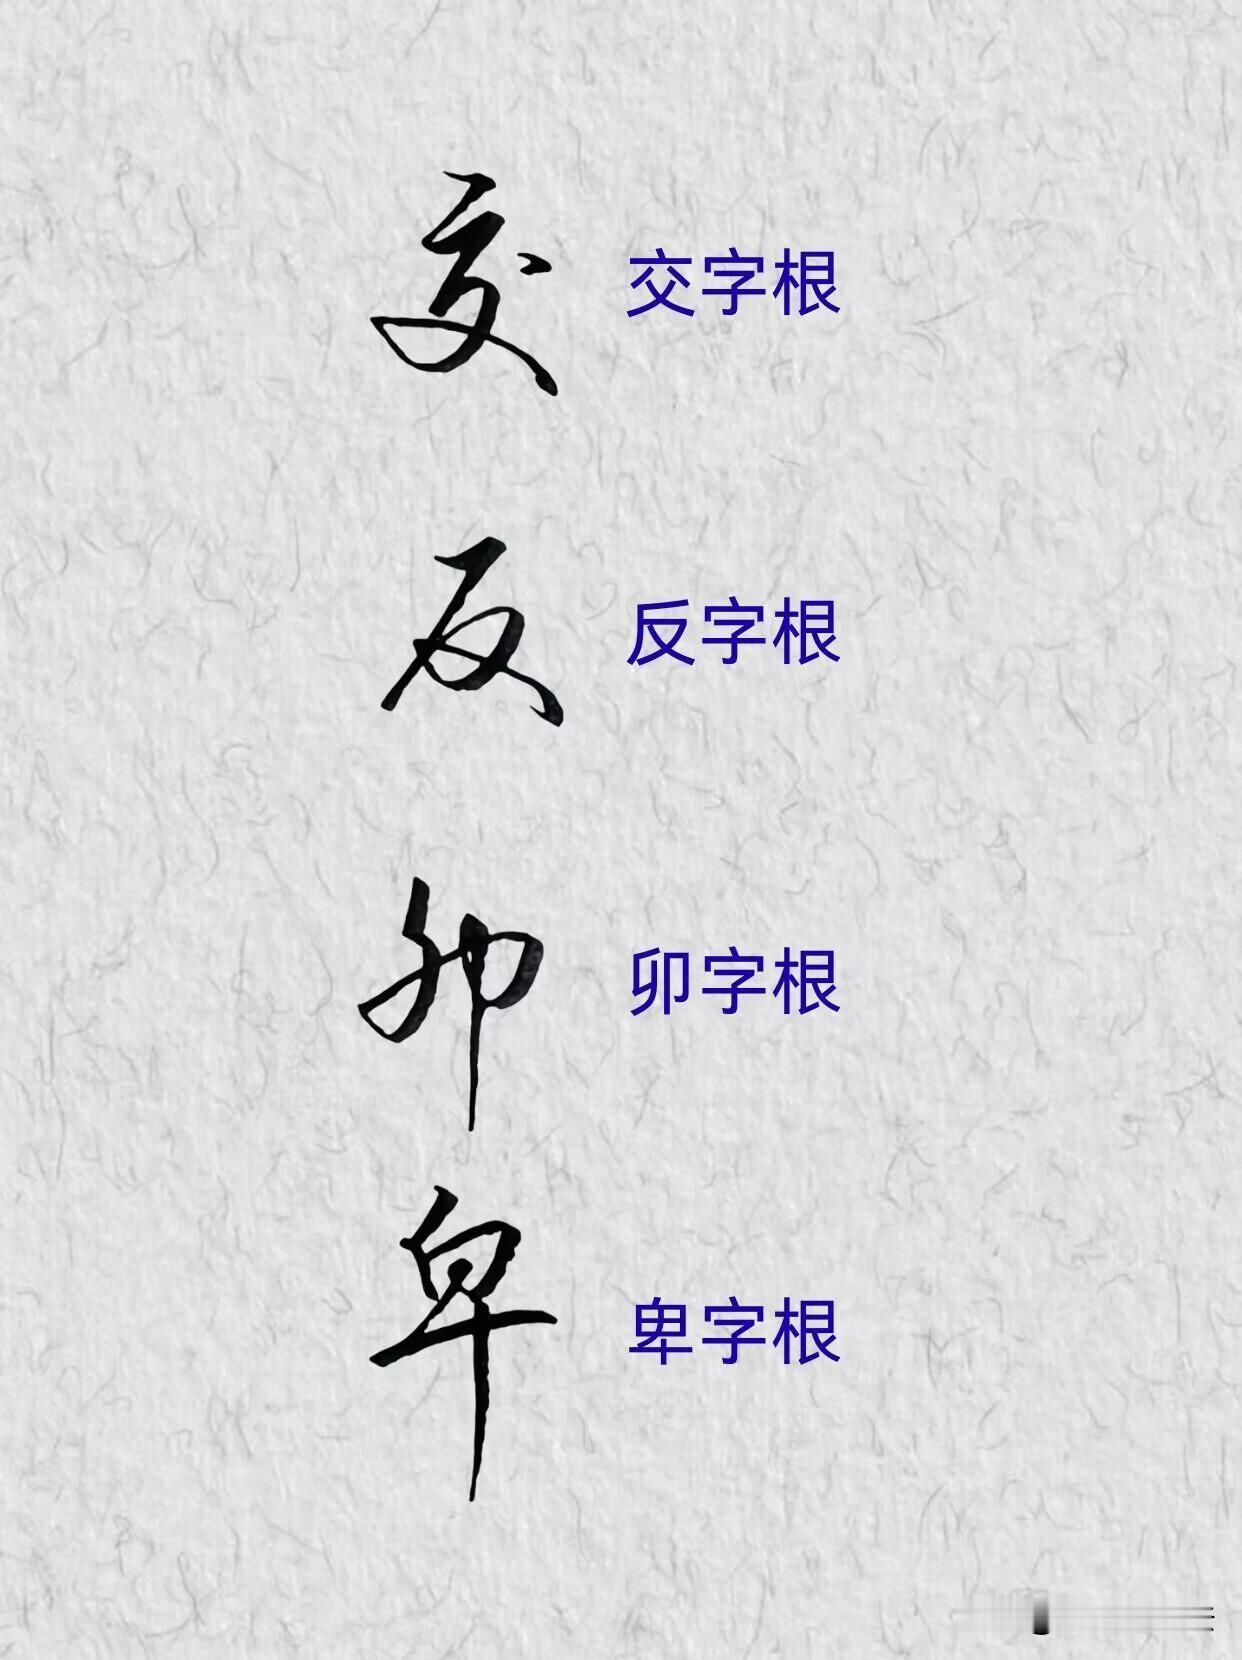 交 交字根
反 反字根
卯 卯字根
卑 卑字根